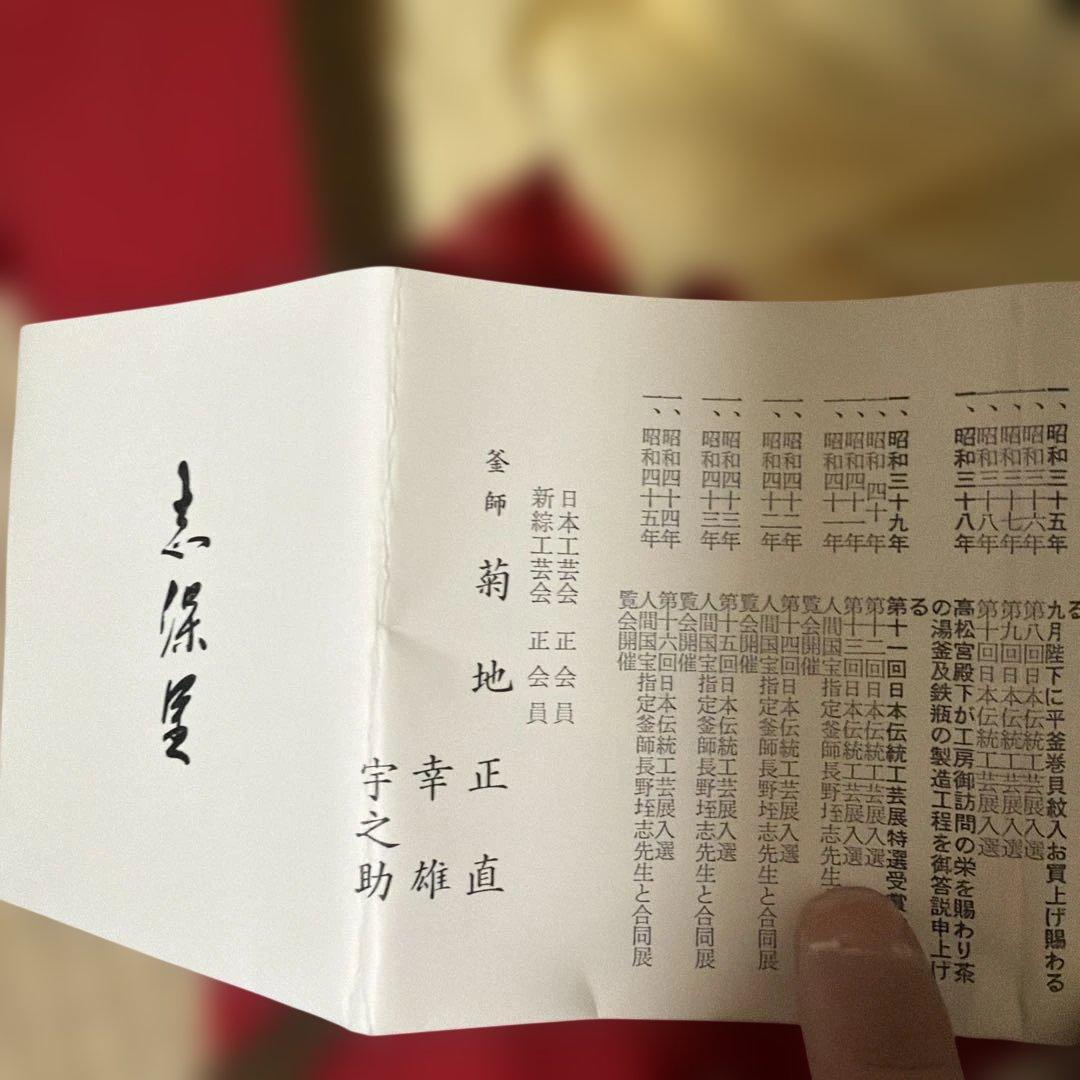 る
一、昭和三十五年 九月陛下に平釜巻貝紋入お買上げ賜わる
一、昭和三十六年 第八回日本伝統工芸展入選
一、昭和三十七年 第九回日本伝統工芸展入選
一、昭和三十八年 第十回日本伝統工芸展入選
一、昭和三十八年 高松宮殿下が工房御訪問の栄を賜わり茶
の湯釜及鉄瓶の製造工程を御答説申上げ
る
一、昭和三十九年 第十一回日本伝統工芸展特選受賞
一、昭和四十年 第十二回日本伝統工芸展入選
一、昭和四十一年 第十三回日本伝統工芸展入選
一、昭和四十一年 人間国宝指定釜師長野垤志先生
覧会開催
一、昭和四十二年 第十四回日本伝統工芸展入選
一、昭和四十二年 人間国宝指定釜師長野垤志先生と合同展
覧会開催
一、昭和四十三年 第十五回日本伝統工芸展入選
一、昭和四十三年 人間国宝指定釜師長野垤志先生と合同展
覧会開催
一、昭和四十四年 第十六回日本伝統工芸展入選
一、昭和四十五年 人間国宝指定釜師長野垤志先生と合同展
覧会開催
日本工芸会 正会員
新綜工芸会 正会員
釜師 菊地 正直
幸雄
宇之助
志保里